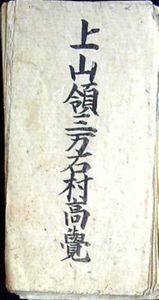 上山領三万石村高覺